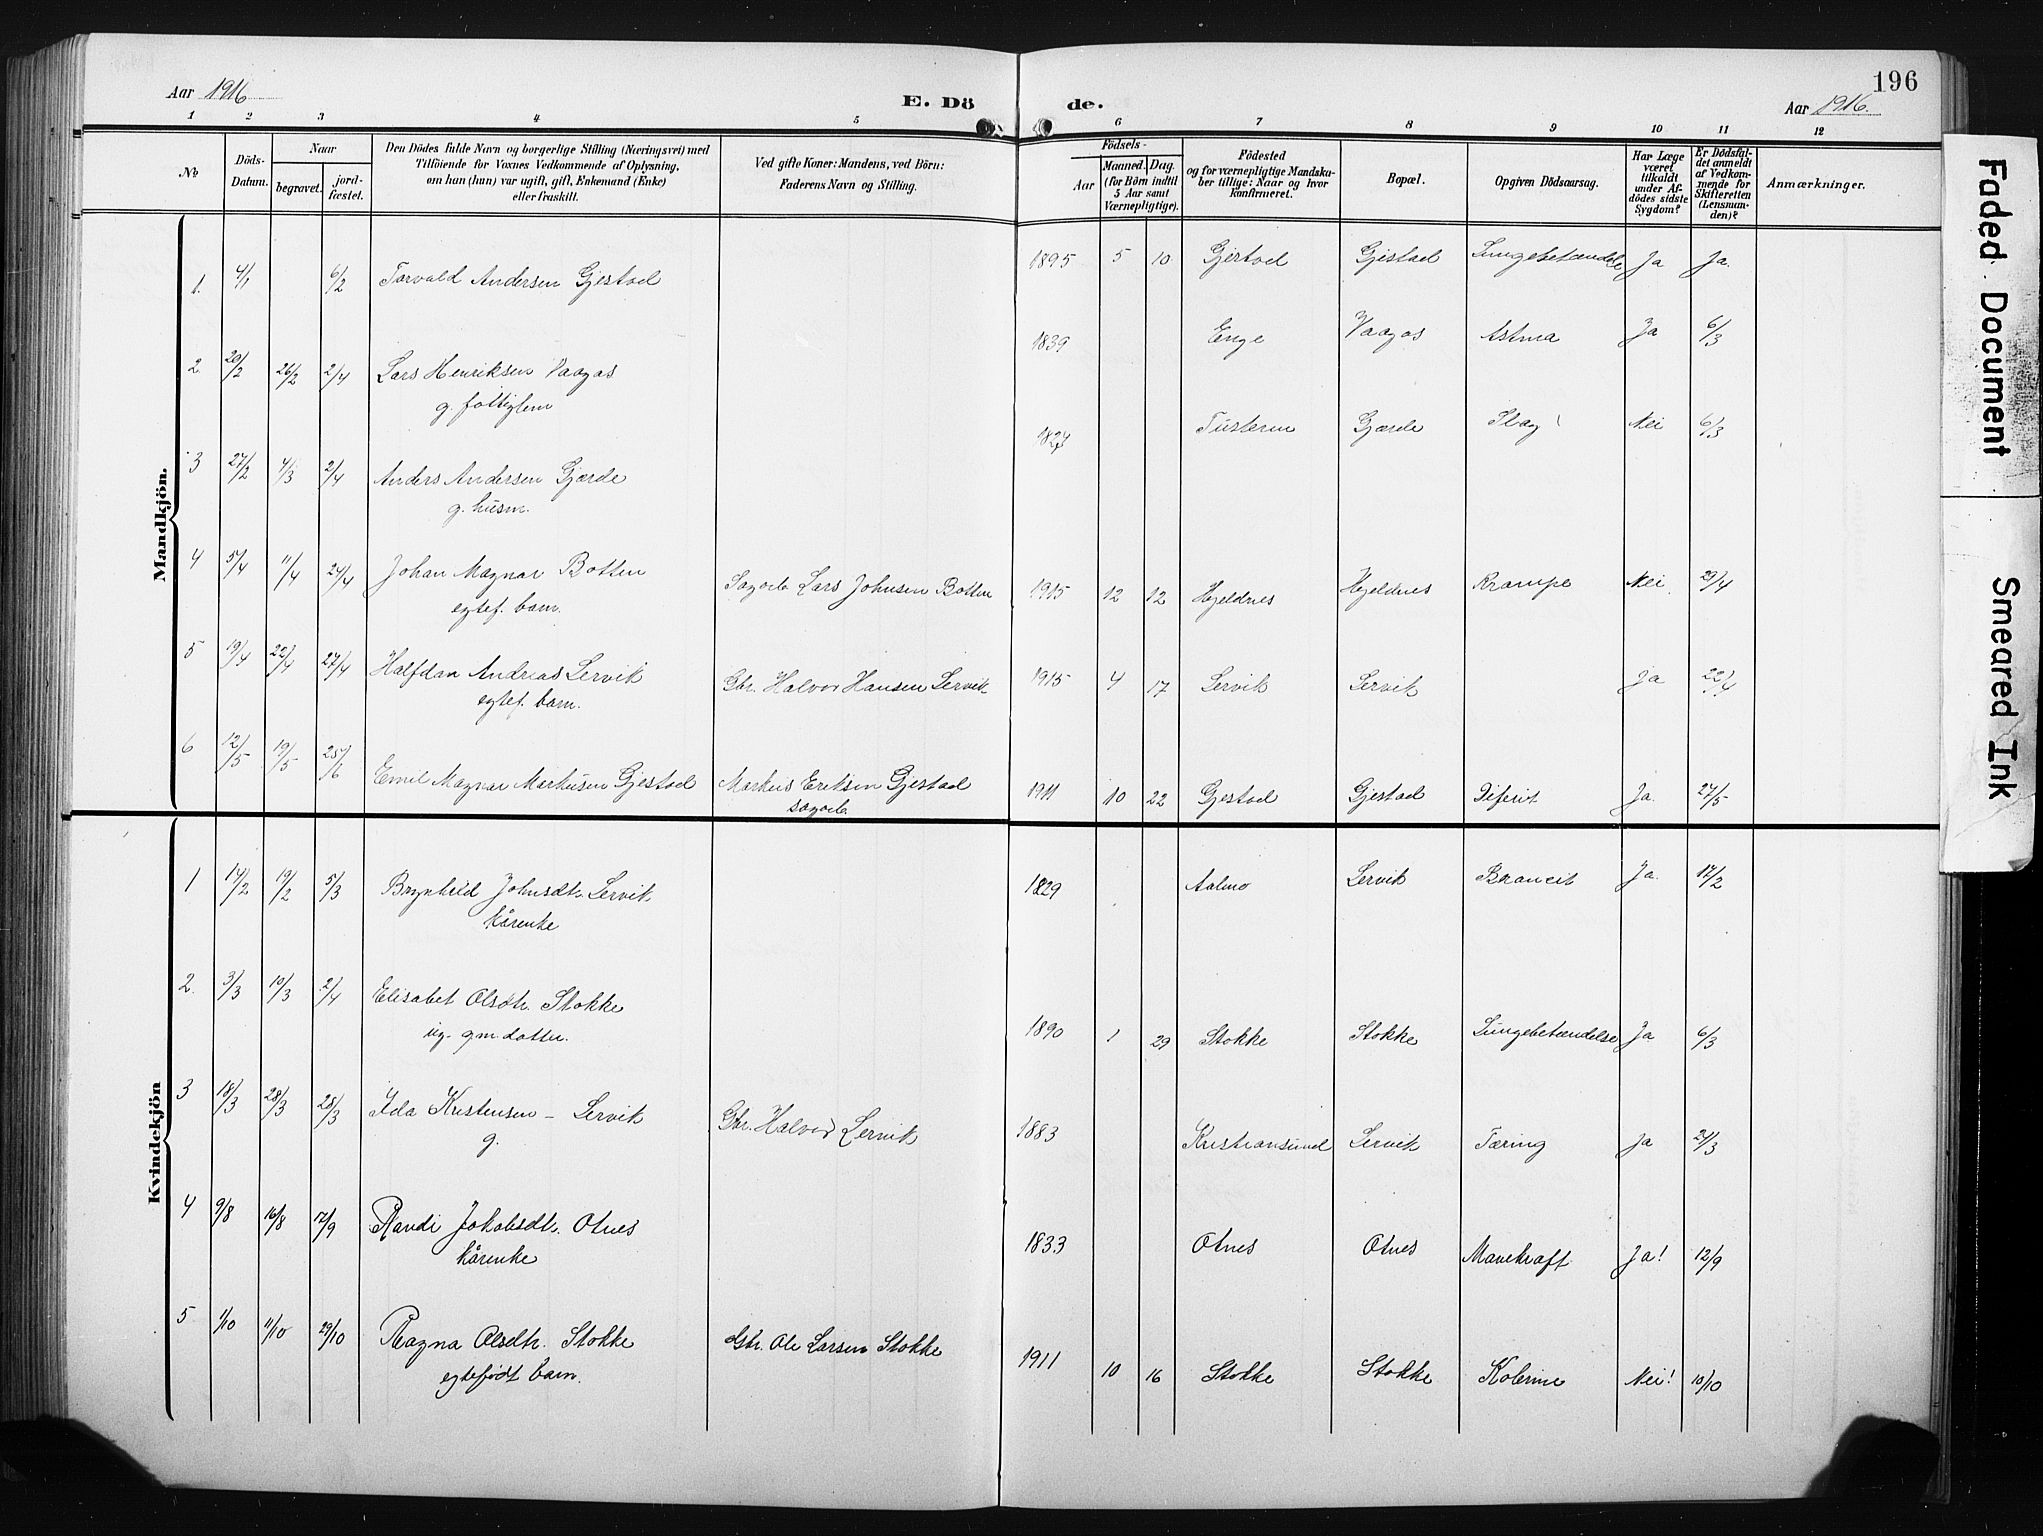 196
Aar 1916
E. Dö de.
Aar 1916.
1 2 3 4 5 6 7 8 9 10 11 12
No
Döds-Datum.
Naar
begravet.
jord-fæstet.
Den Dödes fulde Navn og borgerlige Stilling (Næringsvei) med
Tilföiende for Voxnes Vedkommende af Oplysning,
om han (hun) var ugift, gift, Enkemand (Enke)
eller fraskilt.
Ved gifte Koner: Mandens, ved Börn:
Faderens Navn og Stilling.
Födsels-
Aar
Maaned. Dag.
(for Börn indtil
5 Aar samt
Værnepligtige).
Födested
og for værnepligtige Mandska-
ber tillige: Naar og hvor
konfirmeret.
Bopæl.
Opgiven Dödsaarsag.
Har Læge
været
tilkaldt
under Af-
dödes sidste
Sygdom?
Er Dödsfal-
det anmeldt
af Vedkom-
mende for
Skifteretten
(Lensman-
den)?
Anmærkninger.
Mandkjön.
1. 4/1 6/2 Torvald Andersen Gjestad 1895 5 10 Gjestad Gjestad Lungebetændelse Ja Ja.
2. 20/2 26/2 2/4 Lars Henriksen Vaagos 1839 Enge Vaagos Astma Ja 6/3
g. fattiglem
3 27/2 4/3 2/4 Anders Andersen Gjærde Tusteren Gjærde Slag Nei 6/3
g. husm.
4 5/4 11/4 24/4 Johan Magnar Botten Sagarb. Lars Johnsen Botten 1915 12 12 Hjeldnes Hjeldnes Krampe Nei 29/4
egtef. barn.
5 19/4 22/4 27/4 Halfdan Andreas Lervik Gbr. Halvor Hansen Lervik 1915 4 17 Lervik Lervik Ja 22/4
egtef. barn.
6 12/5 19/5 25/6 Emil Magnar Markusen Gjestad Markus Eriksen Gjestad 1911 10 22 Gjestad Gjestad Diferit Ja. 27/5
sagarb.
Kvindekjön
1 14/2 19/2 5/3 Brynhild Johnsdtr. Lervik 1829 Aalmo Lervik Broncit Ja. 17/2
kårenke
2. 3/3 10/3 2/4 Elisabet Olsdtr. Stokke 1890 1 29 Stokke Stokke Lungebetændelse Ja 6/3
ug. gm. datter.
3 18/3 28/3 28/3 Ida Kristensen – Lervik Gbr. Halvor Lervik 1883 Kristiansund Lervik Tæring Ja 24/3
g.
4 9/8 16/8 17/9 Randi Jakobsdtr. Otnes 1833 Otnes Otnes Mavekræft Ja! 12/9
kårenke
5 1/10 11/10 29/10 Ragna Olsdtr. Stokke Gbr. Ole Larsen Stokke 1911 10 16 Stokke Stokke Kolerine Nei! 10/10
egtefødt barn.
Faded Document
Smeared Ink